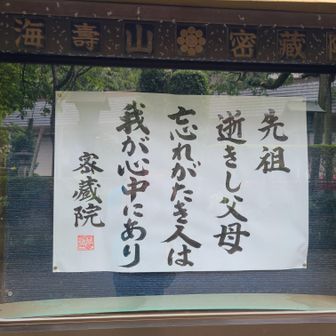 海壽山 密蔵院
先祖
逝きし父母
忘れがたき人は
我が心中にあり
密蔵院